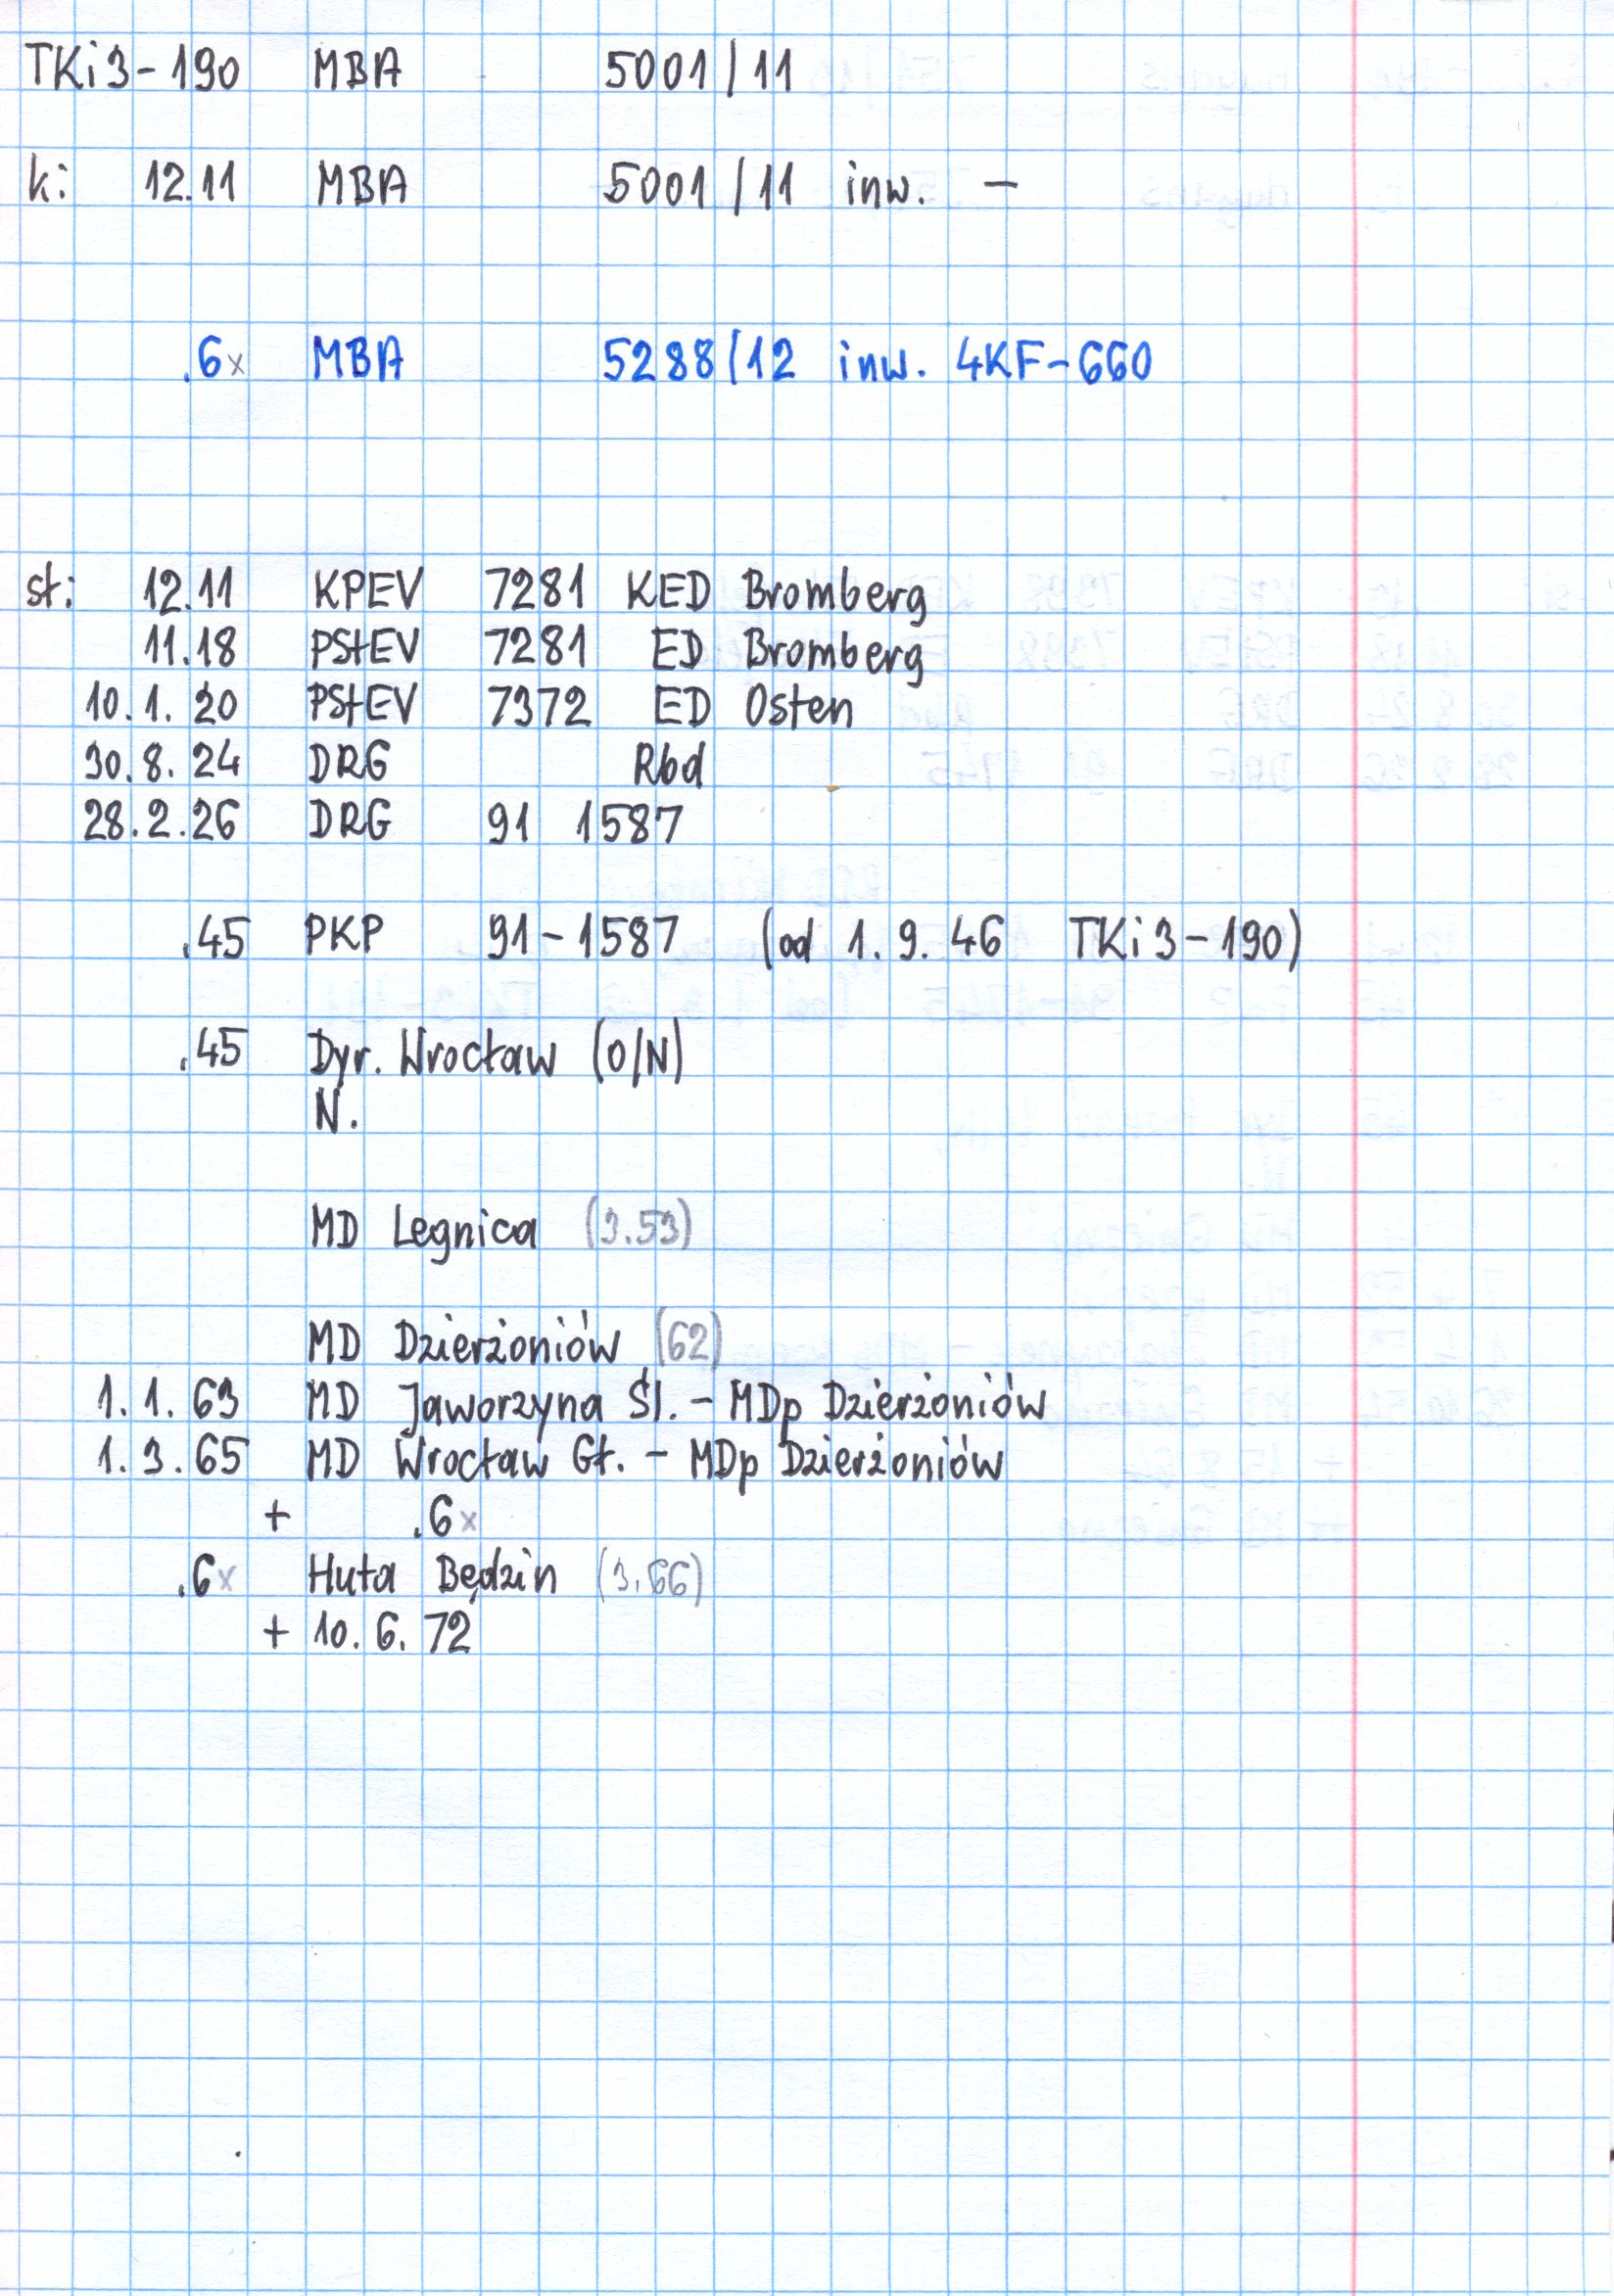 TKi3-190 MBA 5001/11
k: 12.11 MBA 5001/11 inw. -
.6x MBA 5288/12 inw. 4KF-660
st: 12.11 KPEV 7281 KED Bromberg
11.18 PStEV 7281 ED Bromberg
10.1.20 PStEV 7372 ED Osten
30.8.24 DRG Rbd
28.2.26 DRG 91 1587
.45 PKP 91-1587 (od 1.9.46 TKi3-190)
.45 Dyr. Wrocław (O/N)
N.
MD Legnica (3.53)
MD Dzierżoniów (62)
1.1.63 MD Jaworzyna Śl. - MDp Dzierżoniów
1.3.65 MD Wrocław Gł. - MDp Dzierżoniów
+ .6x
.6x Huta Będzin (3.66)
+ 10.6.72